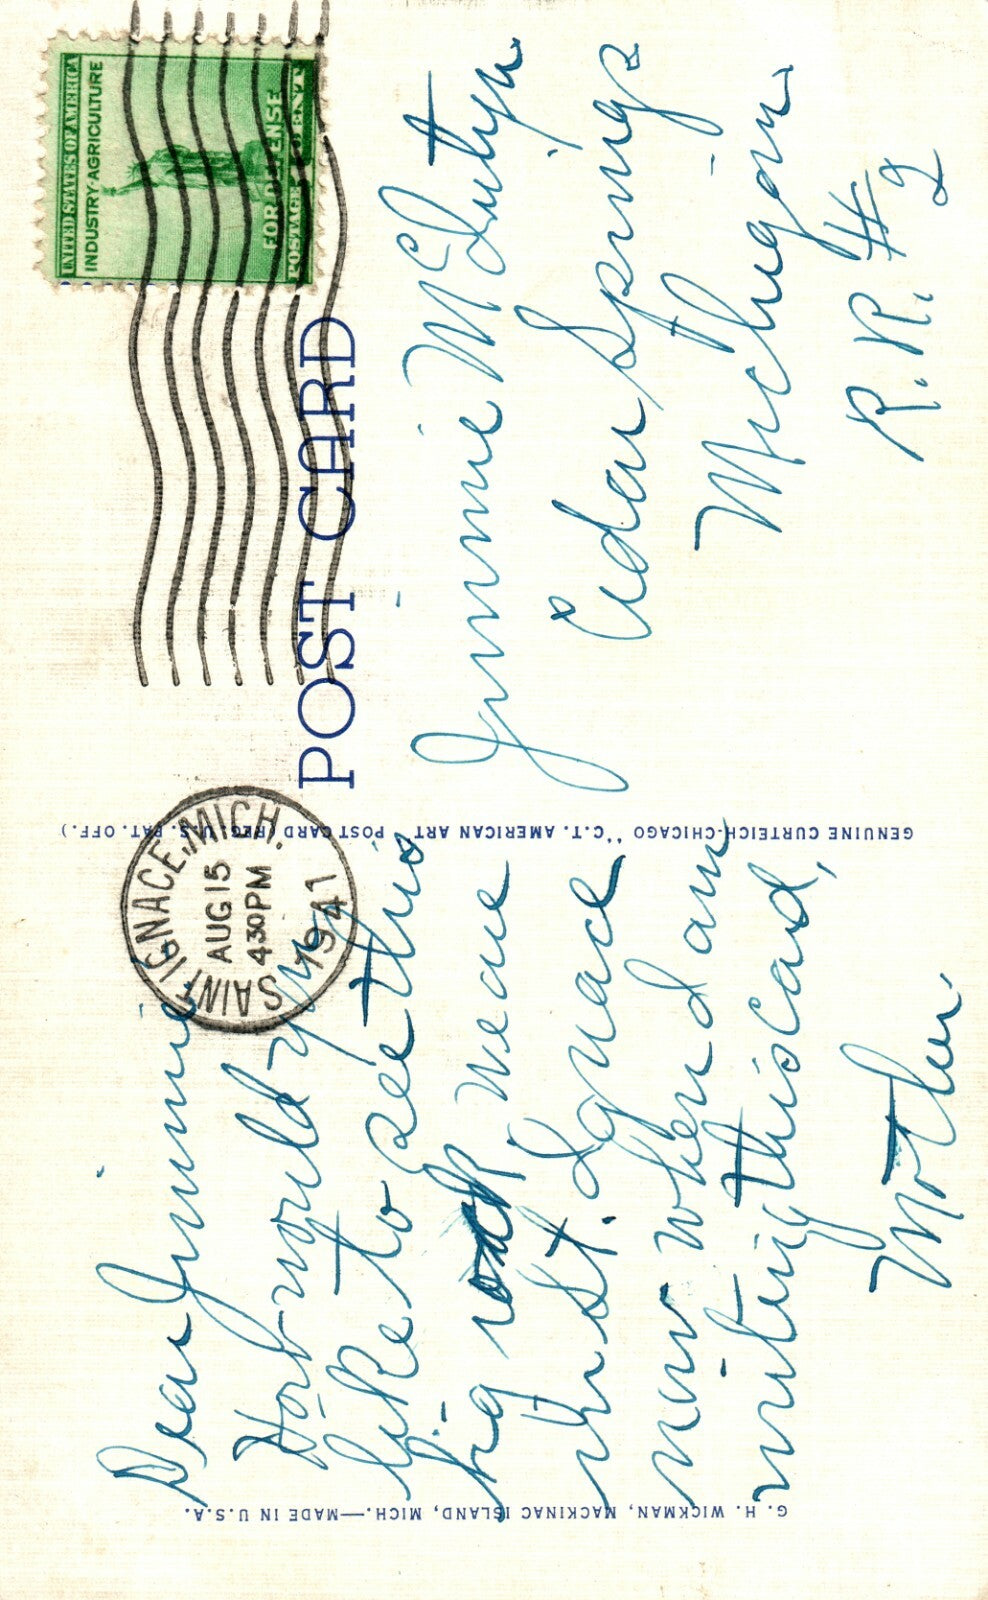 UNITED STATES OF AMERICA
INDUSTRY·AGRICULTURE
FOR DEFENSE
POSTAGE 1 CENT
SAINT IGNACE, MICH.
AUG 15
430 PM
1941
POST CARD
Dear Jimmie
How would you
like to see this
big rock, we are
in St. Ignace
now when I am
writing this card,
Mother.
Jimmie McIntyre
Cedar Springs
Michigan
R.R. #2
GENUINE CURTEICH-CHICAGO "C.T. AMERICAN ART" POST CARD (REG. U.S. PAT. OFF.)
G. H. WICKMAN, MACKINAC ISLAND, MICH.—MADE IN U.S.A.